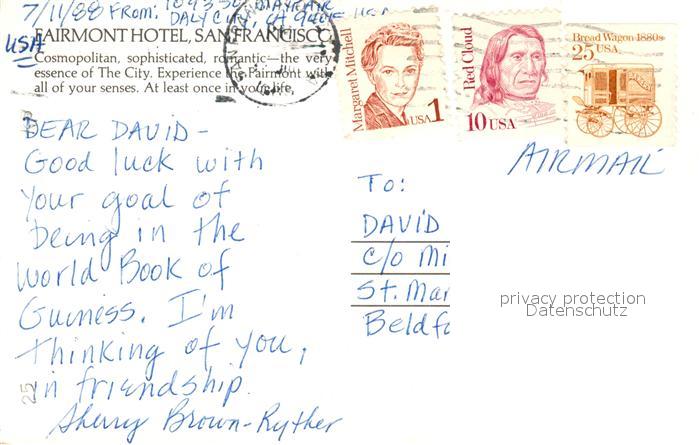 7/11/88 From: MAYFAIR
DALY CITY, CA USA
USA
FAIRMONT HOTEL, SAN FRANCISCO
Cosmopolitan, sophisticated, romantic—the very
essence of The City. Experience the Fairmont with
all of your senses. At least once in your life.
Margaret Mitchell
USA 1
Red Cloud
10 USA
Bread Wagon 1880s
25 USA
AIRMAIL
DEAR DAVID -
Good luck with
your goal of
being in the
World Book of
Guiness. I'm
thinking of you,
in friendship.
Sherry Brown-Ryther
25
To:
DAVID
c/o Mi
St. Mar
Beldfo
privacy protection
Datenschutz